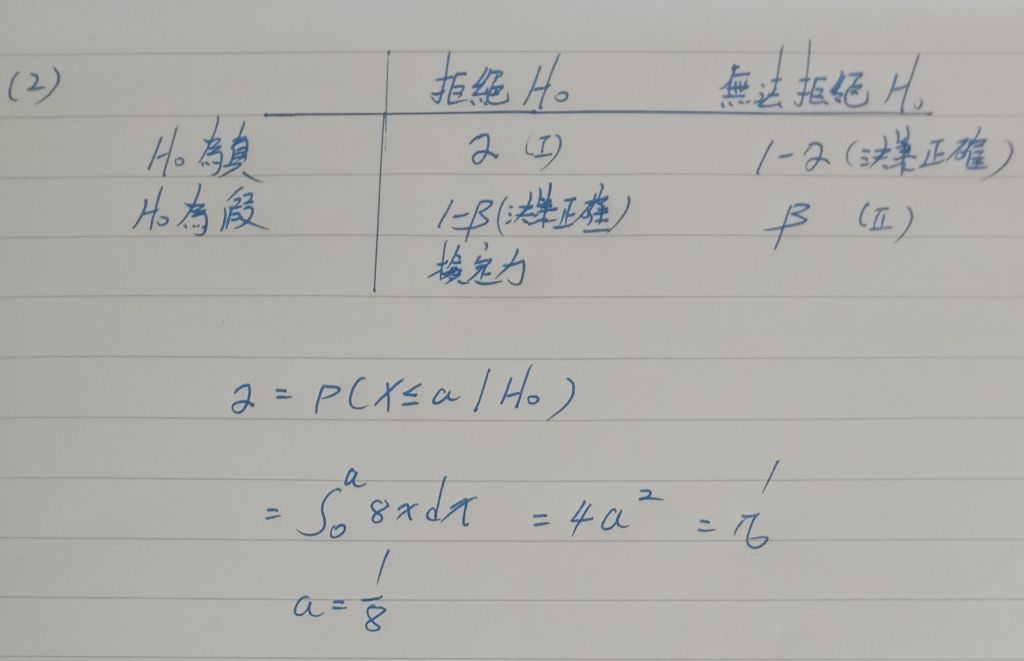 (2) 拒絕 H₀ 無法拒絕 H₀
H₀ 為真 α (I) 1-α (決策正確)
H₀ 為假 1-β (決策正確) β (II)
檢定力
α = P(X ≤ a | H₀)
= ∫₀ᵃ 8x dx = 4a² = 1/16
a = 1/8